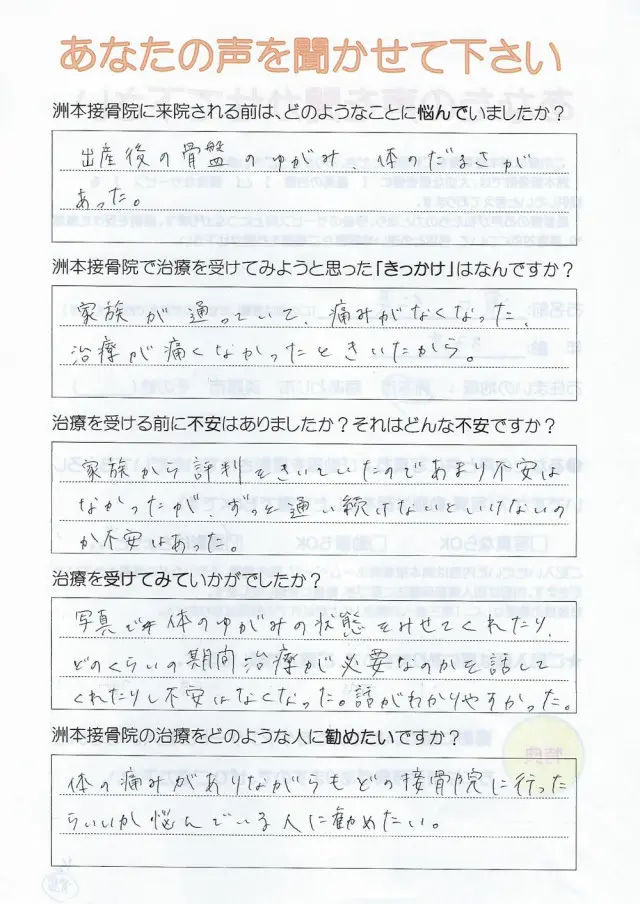 あなたの声を聞かせて下さい
洲本接骨院に来院される前は、どのようなことに悩んでいましたか？
出産後の骨盤のゆがみ、体のだるさが
あった。
洲本接骨院で治療を受けてみようと思った「きっかけ」はなんですか？
家族が通っていて、痛みがなくなった、
治療が痛くなかったときいたから。
治療を受ける前に不安はありましたか？それはどんな不安ですか？
家族から評判をきいていたのであまり不安は
なかったが ずっと通い続けないといけないの
か不安はあった。
治療を受けてみていかがでしたか？
写真で体のゆがみの状態をみせてくれたり、
どのくらいの期間治療が必要なのかを話して
くれたりし不安はなくなった。話がわかりやすかった。
洲本接骨院の治療をどのような人に勧めたいですか？
体の痛みがありながらもどの接骨院に行った
らいいか悩んでいる人に勧めたい。